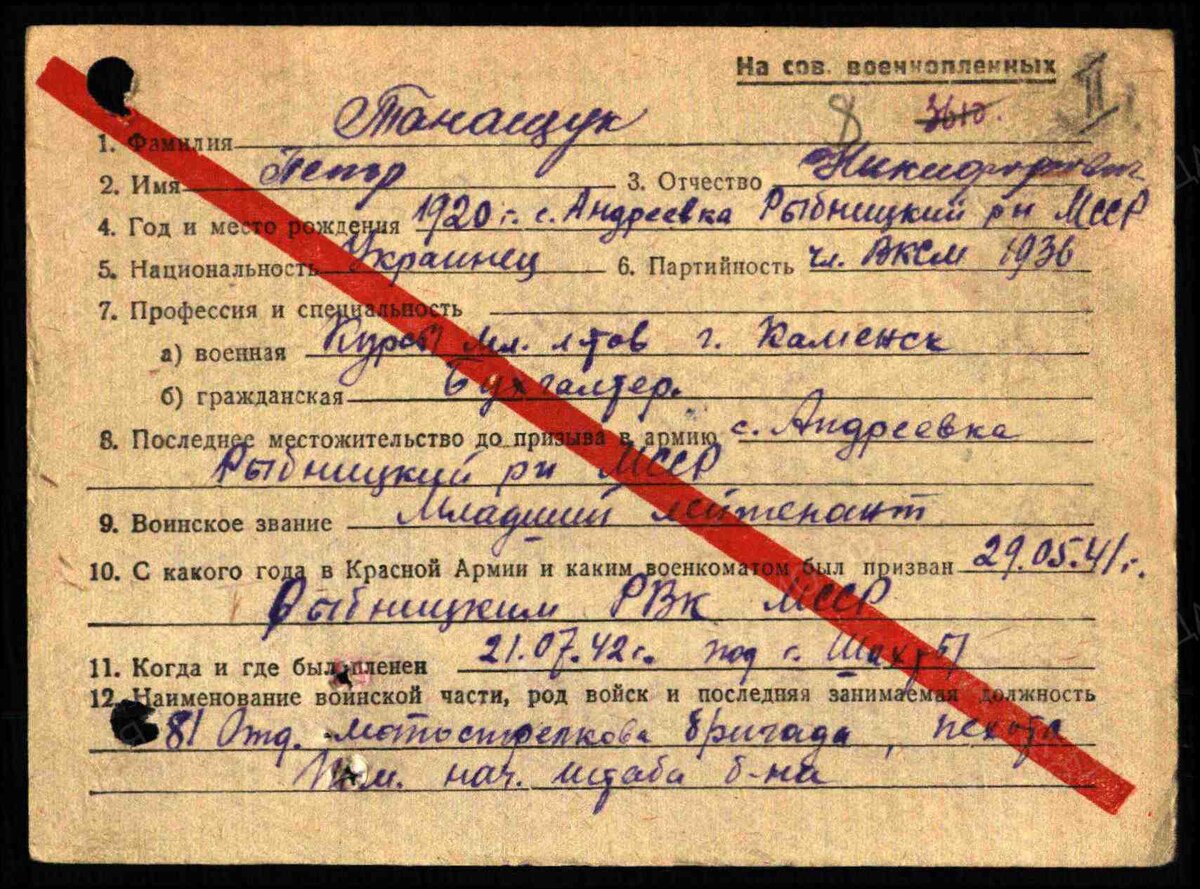 На сов. военнопленных
8 3610. II
1. Фамилия Танащук
2. Имя Петр 3. Отчество Никифорович
4. Год и место рождения 1920 г. с. Андреевка Рыбницкий рн МССР
5. Национальность Украинец 6. Партийность чл. ВКСМ 1936
7. Профессия и специальность
а) военная Курсы мл. л-тов г. Каменск
б) гражданская Бухгалтер.
8. Последнее местожительство до призыва в армию с. Андреевка
Рыбницкий рн МССР
9. Воинское звание Младший лейтенант
10. С какого года в Красной Армии и каким военкоматом был призван 29.05.41 г.
Рыбницким РВК МССР
11. Когда и где был пленен 21.07.42 г. под г. Шахты
12. Наименование воинской части, род войск и последняя занимаемая должность
81 Отд. мотострелкова бригада, пехота
Пом. нач. штаба б-на